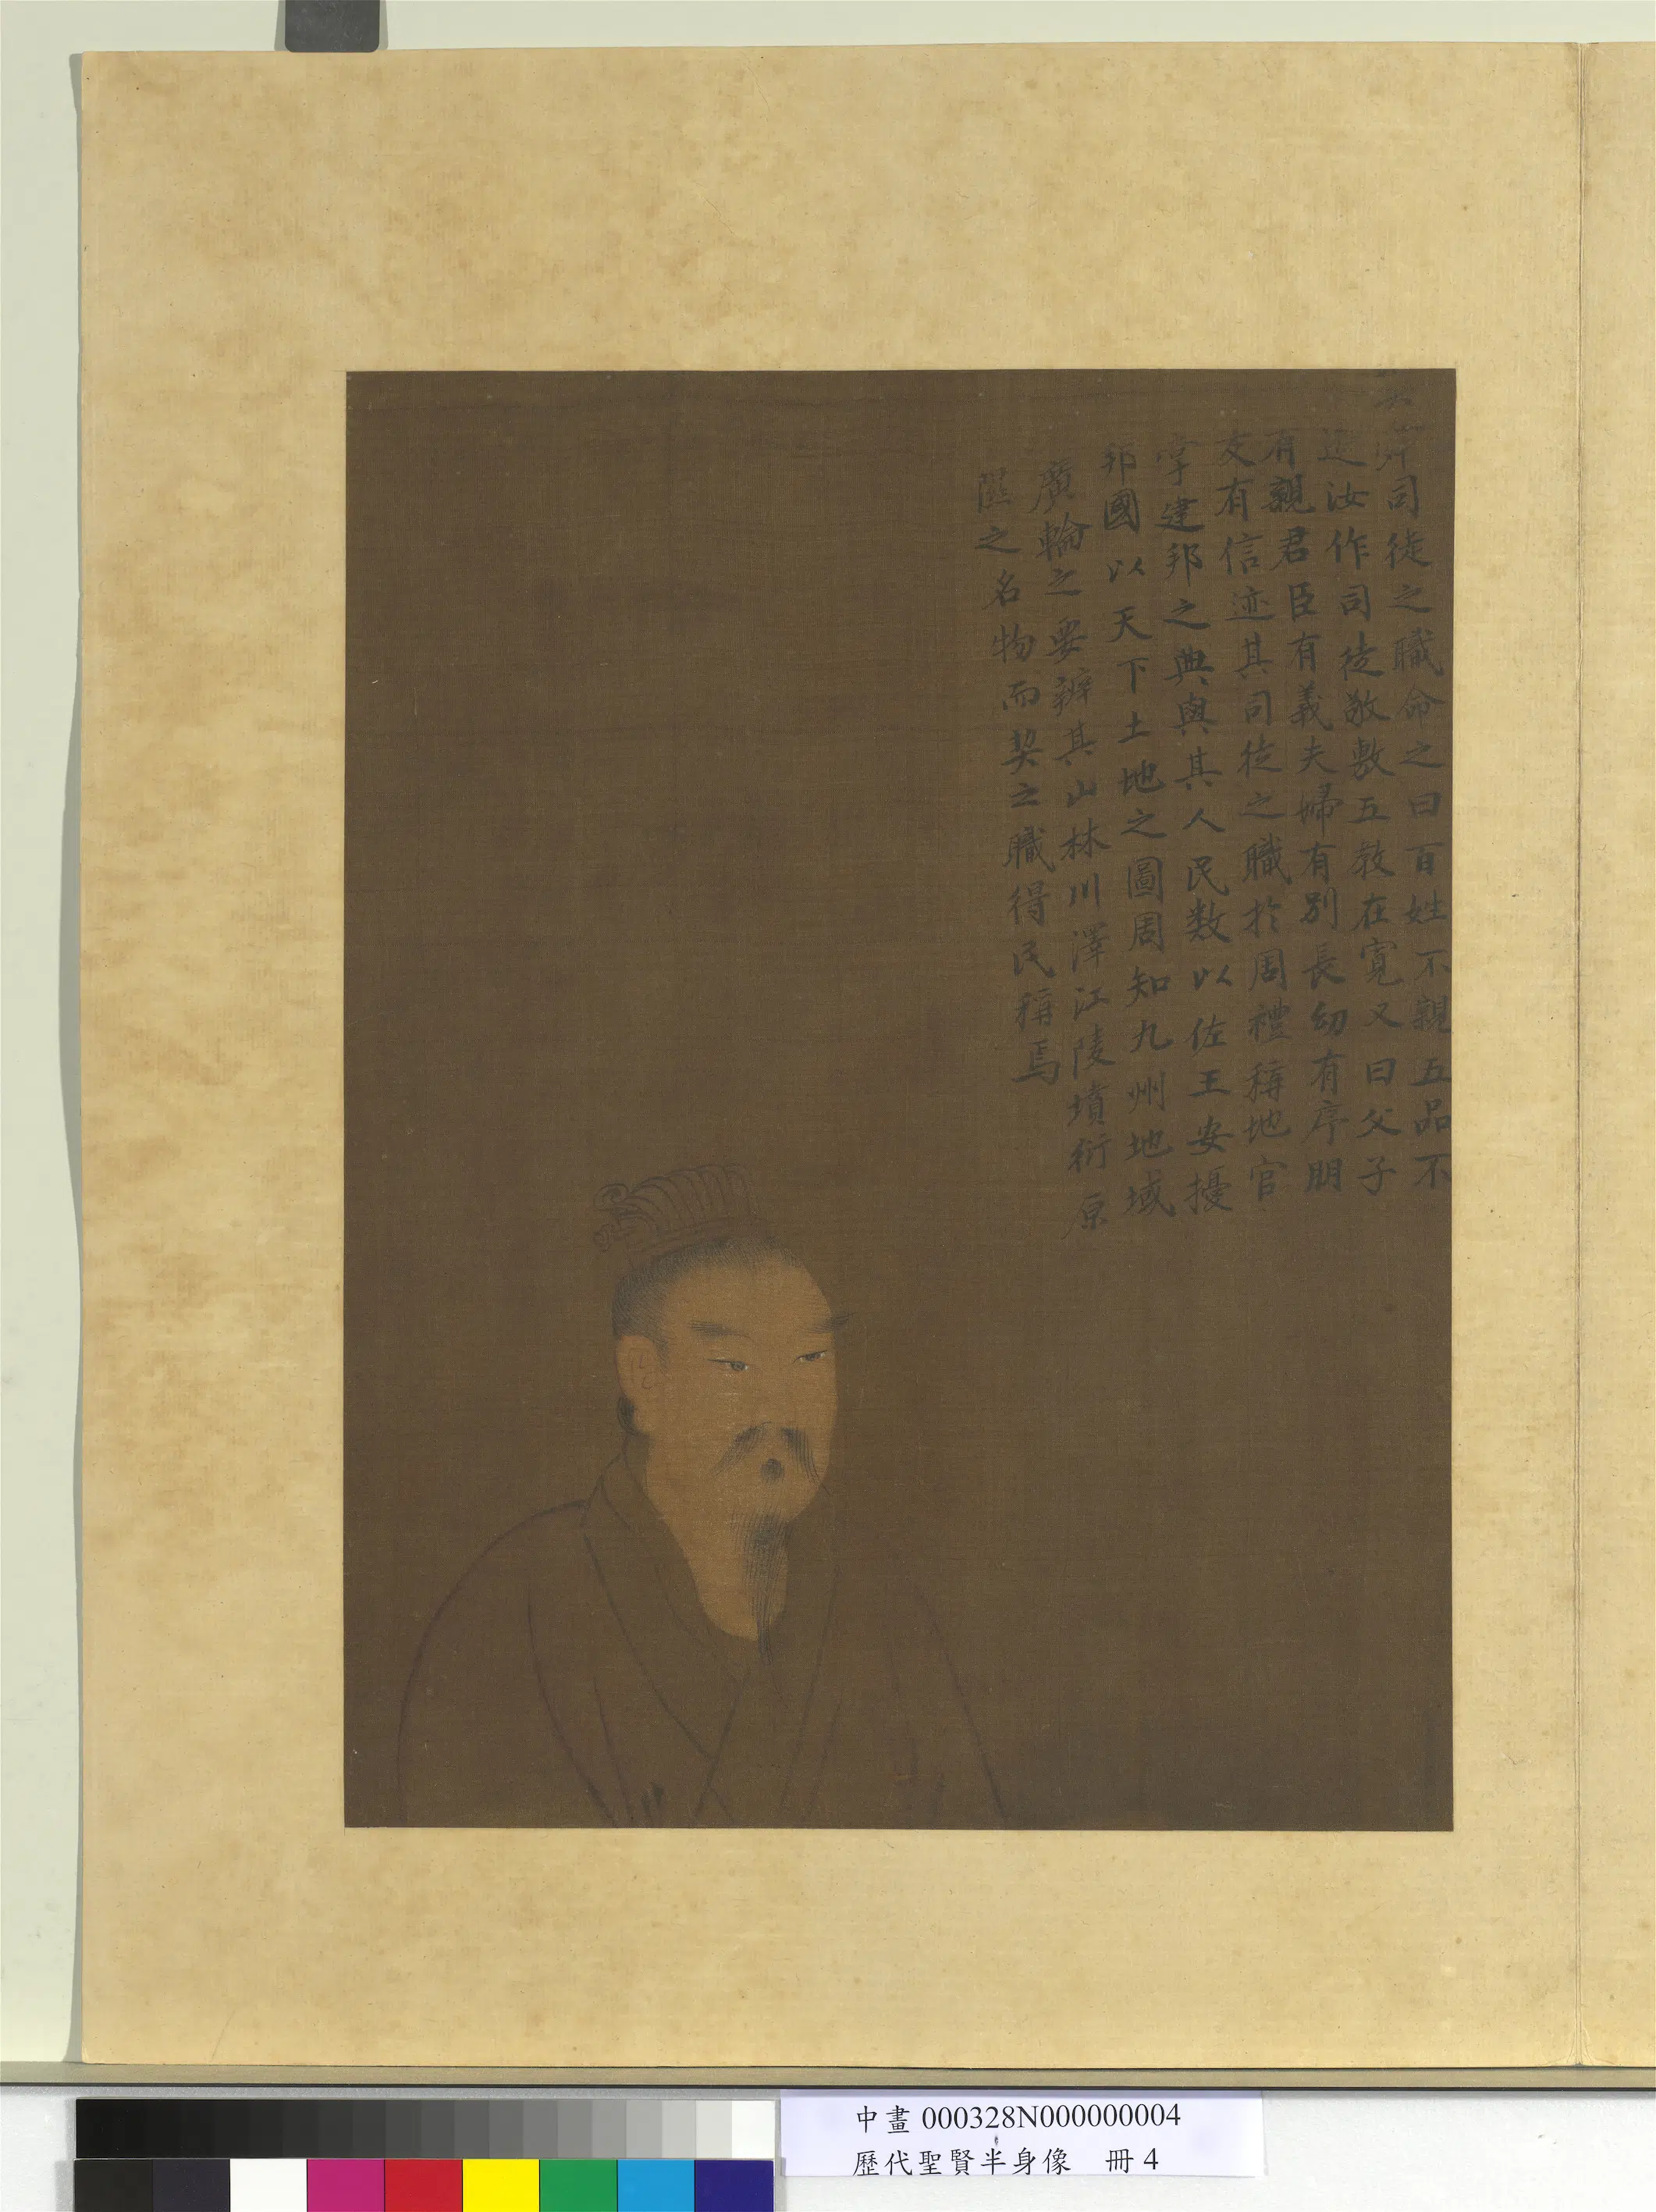 舜司徒之職命之曰百姓不親五品不
遜汝作司徒敬敷五教在寬又曰父子
有親君臣有義夫婦有別長幼有序朋
友有信迹其司徒之職於周禮稱地官
掌建邦之典與其人民数以佐王安擾
邦國以天下土地之圖周知九州地域
廣輪之要辨其山林川澤江陵墳衍原
隰之名物而契之職得民稱焉
中畫 000328N000000004
歷代聖賢半身像 冊 4